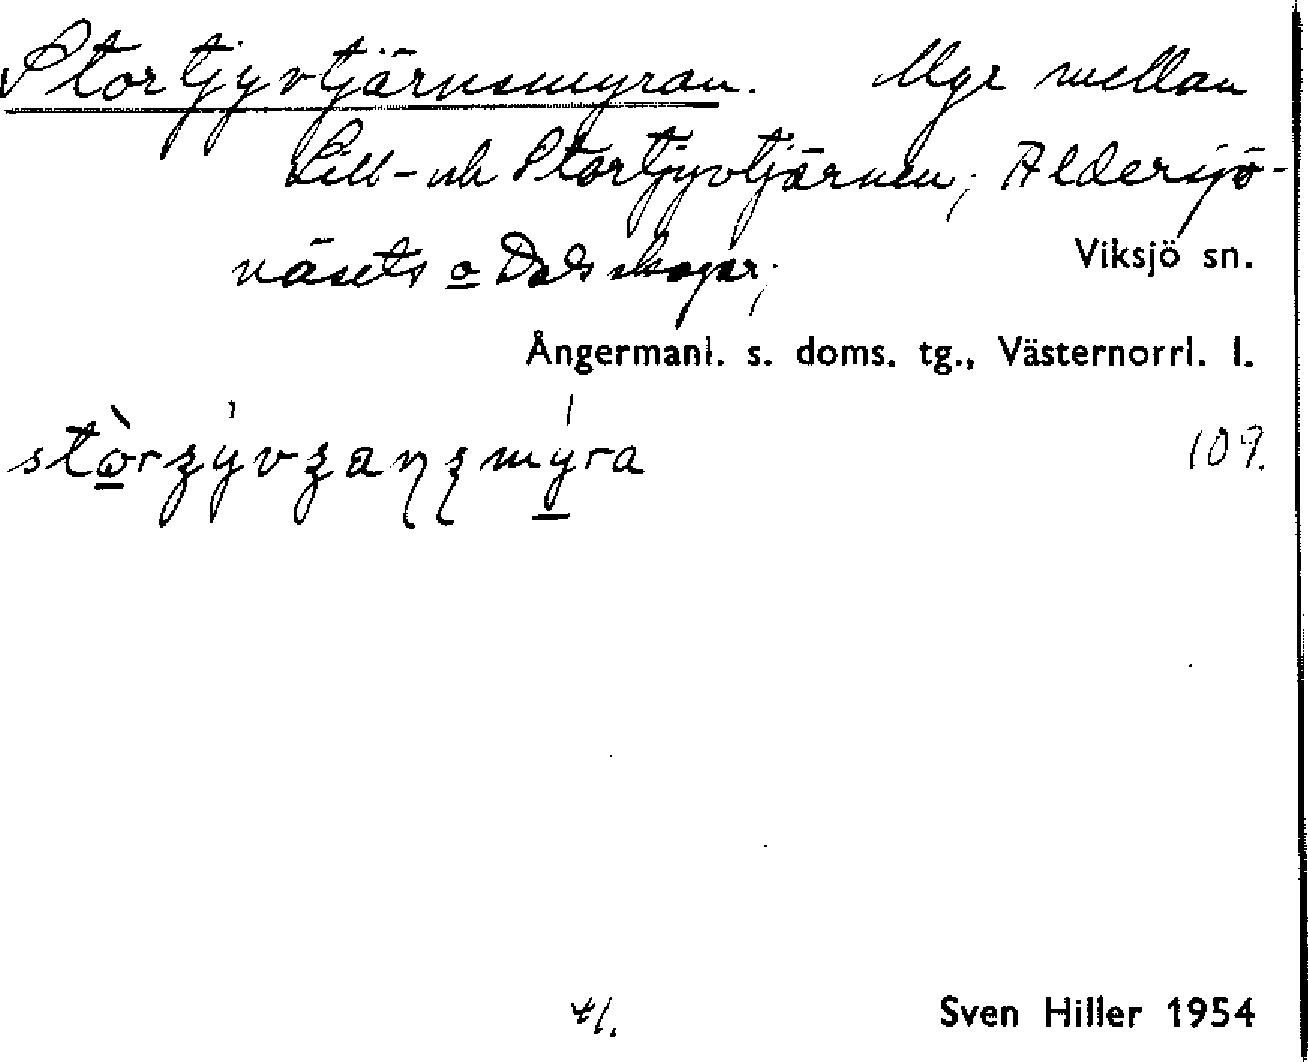 Stortjyvtjärnsmyran. Myr mellan
Lill- och Stortjyvtjärnen; Aldersjö-
näsets o Dals skogar;
Viksjö sn.
Ångermanl. s. doms. tg., Västernorrl. l.
109.
Sven Hiller 1954